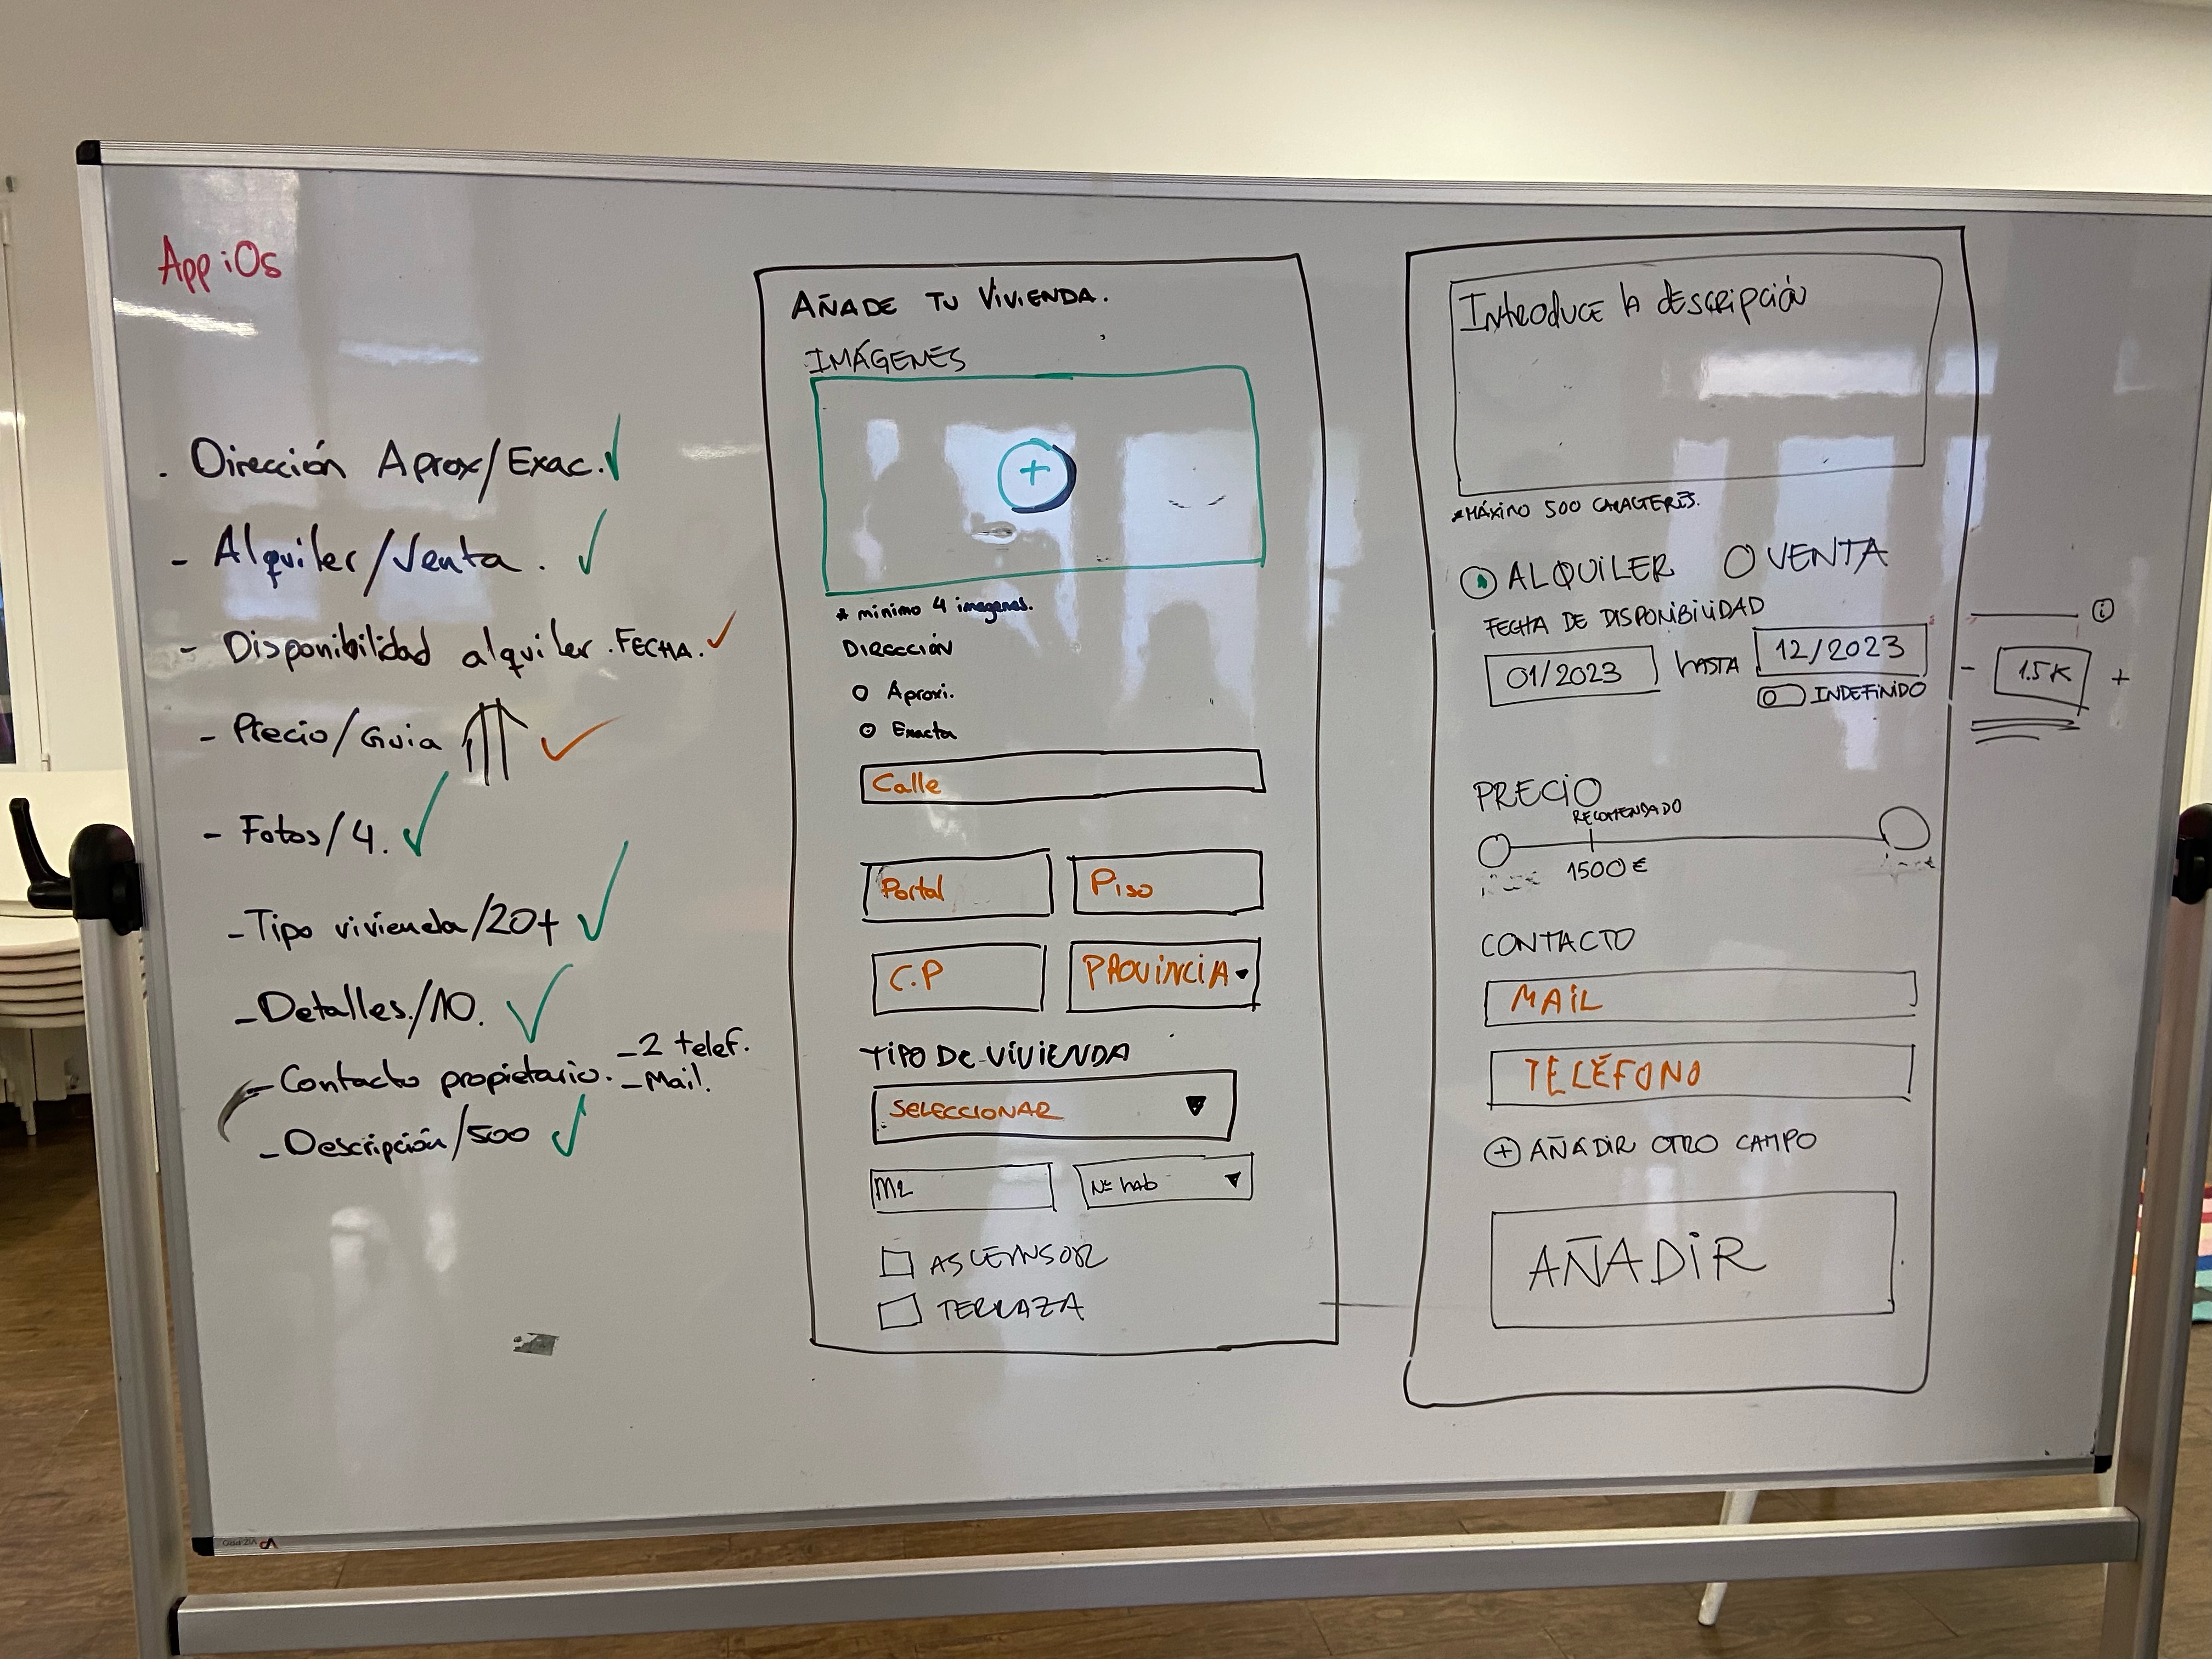 App iOs
. Dirección Aprox/Exac.
- Alquiler/Venta.
- Disponibilidad alquiler. FECHA.
- Precio/Guia
- Fotos/4.
- Tipo vivienda/20+
- Detalles./10.
- Contacto propietario.
- 2 telef.
- Mail.
- Descripción/500
AÑADE TU VIVIENDA.
IMÁGENES
+
* minimo 4 imagenes.
DIRECCIÓN
Aproxi.
Exacta
Calle
Portal
Piso
C.P
PROVINCIA
TIPO DE VIVIENDA
SELECCIONAR
M2
Nº hab
ASCENSOR
TERRAZA
Introduce la descripción
*MÁXIMO 500 CARACTERES.
ALQUILER VENTA
FECHA DE DISPONIBILIDAD
01/2023 HASTA 12/2023
INDEFINIDO
PRECIO
RECOMENDADO
1500 €
CONTACTO
MAIL
TELÉFONO
+ AÑADIR OTRO CAMPO
AÑADIR
i
- 1.5K +